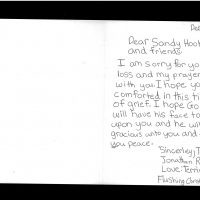 Dea
Dear Sandy Hook
and friends
I am sorry for yo
loss and my prayer
with you. I hope you
comforted in this ti
of grief. I hope Go
will have his face to
upon you and be wi
gracious unto you and
you peace.
Sincerley, T
Jonathan R
Love, Terri
Flushing Chris